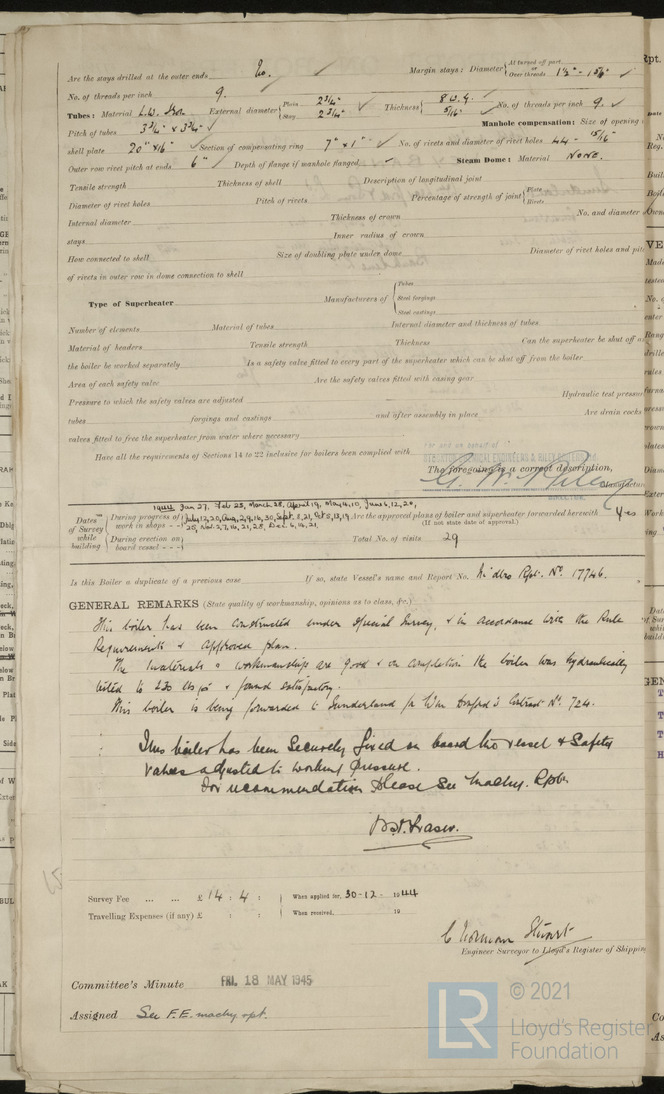 Are the stays drilled at the outer ends No. Margin stays: Diameter { At turned off part or Over threads 1½" - 1⅝"
No. of threads per inch 9.
Tubes: Material L.W. Iron External diameter { Plain 2¾" Stay 2¾" Thickness { 8 W.G. 5/16" No. of threads per inch 9.
Pitch of tubes 3¾" x 3¾" Manhole compensation: Size of opening
shell plate 20" x 16" Section of compensating ring 7" x 1" No. of rivets and diameter of rivet holes 44 - 15/16"
Outer row rivet pitch at ends 6" Depth of flange if manhole flanged Steam Dome: Material NONE.
Tensile strength Thickness of shell Description of longitudinal joint
Diameter of rivet holes Pitch of rivets Percentage of strength of joint { Plate Rivets
Internal diameter Thickness of crown No. and diameter
stays Inner radius of crown
How connected to shell Size of doubling plate under dome Diameter of rivet holes and
of rivets in outer row in dome connection to shell
Type of Superheater Manufacturers of { Tubes Steel forgings Steel castings
Number of elements Material of tubes Internal diameter and thickness of tubes
Material of headers Tensile strength Thickness Can the superheater be shut off
the boiler be worked separately Is a safety valve fitted to every part of the superheater which can be shut off from the boiler
Area of each safety valve Are the safety valves fitted with easing gear
Pressure to which the safety valves are adjusted Hydraulic test pressure
tubes forgings and castings and after assembly in place Are drain cocks
valves fitted to free the superheater from water where necessary
Have all the requirements of Sections 14 to 22 inclusive for boilers been complied with
The foregoing is a correct description,
DIRECTOR.
1944 Jan 27, Feb 25, March 28, April 19, May 4, 10, June 6, 12, 20,
Dates of Survey while building { During progress of work in shops - - July 13, 20, Aug. 2, 9, 16, 30, Sept. 8, 21, Oct 5, 13, 19, 25, Nov. 2, 7, 16, 21, 28, Dec. 6, 14, 21. Are the approved plans of boiler and superheater forwarded herewith Yes
(If not state date of approval.)
During erection on board vessel - - - Total No. of visits 29
Is this Boiler a duplicate of a previous case If so, state Vessel's name and Report No. Midbro Rpt. No 17746.
GENERAL REMARKS (State quality of workmanship, opinions as to class, &c.)
This boiler has been constructed under Special Survey, & in accordance with the Rule
Requirements & approved plan.
The materials & workmanship are good & on completion the boiler was hydraulically
tested to 230 lbs □" & found satisfactory.
This boiler is being forwarded to Sunderland for Wm Doxford's Contract No 724.
This boiler has been securely fixed on board the vessel & Safety
valves adjusted to working pressure.
For recommendation please see Machy. Rpt.
Survey Fee ... ... £ 14 : 4 : When applied for, 30-12- 1944
Travelling Expenses (if any) £ : : When received, 19
C Norman Stuart
Engineer Surveyor to Lloyd's Register of Shipping
Committee's Minute FRI. 18 MAY 1945
Assigned See F.E. machy rpt.
LR
© 2021
Lloyd's Register
Foundation